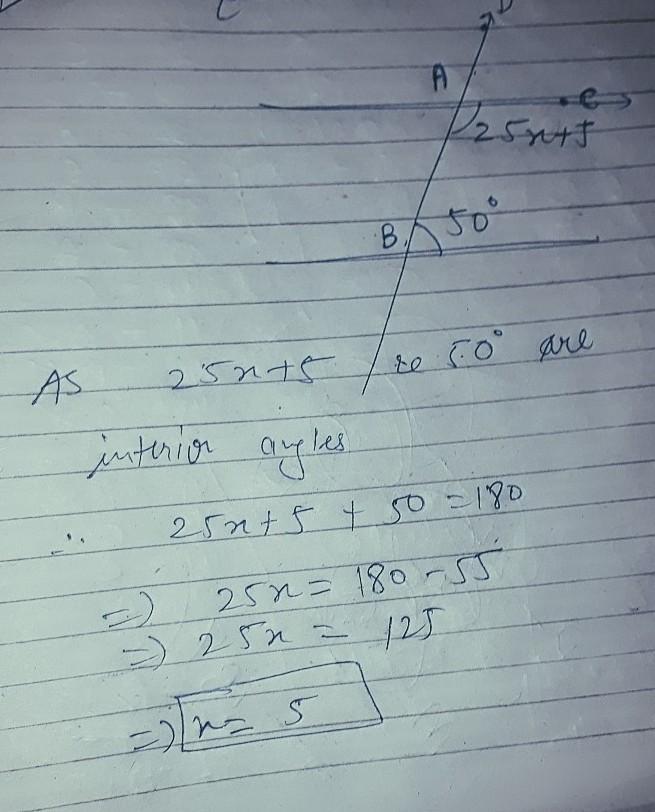 C
D
A
C
25x+5
B
50°
AS 25x+5 & 50° are
interior angles
∴ 25x+5 + 50 = 180
=> 25x = 180 - 55
=> 25x = 125
=> x = 5